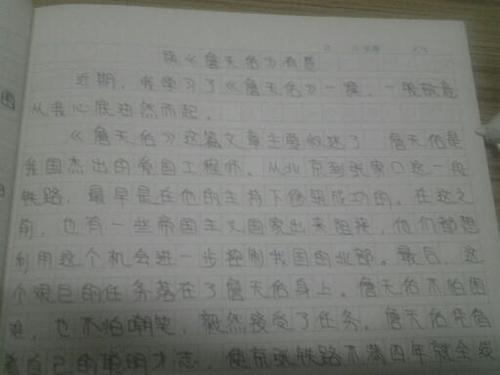 读《詹天佑》有感
近期，我学习了《詹天佑》一课，一股敬意
从我心底油然而起。
《詹天佑》这篇文章主要叙述了 詹天佑是
我国杰出的爱国工程师。从北京到张家口这一段
铁路，最早是在他的主持下修筑成功的。在这之
前，也有一些帝国主义国家出来阻挠，他们都想
利用这个机会进一步控制我国的北部。最后，这
个艰巨的任务落在了詹天佑身上。詹天佑不怕困
难，也不怕嘲笑，毅然接受了任务。詹天佑凭借
着自己的聪明才志，使京张铁路不满四年就全线